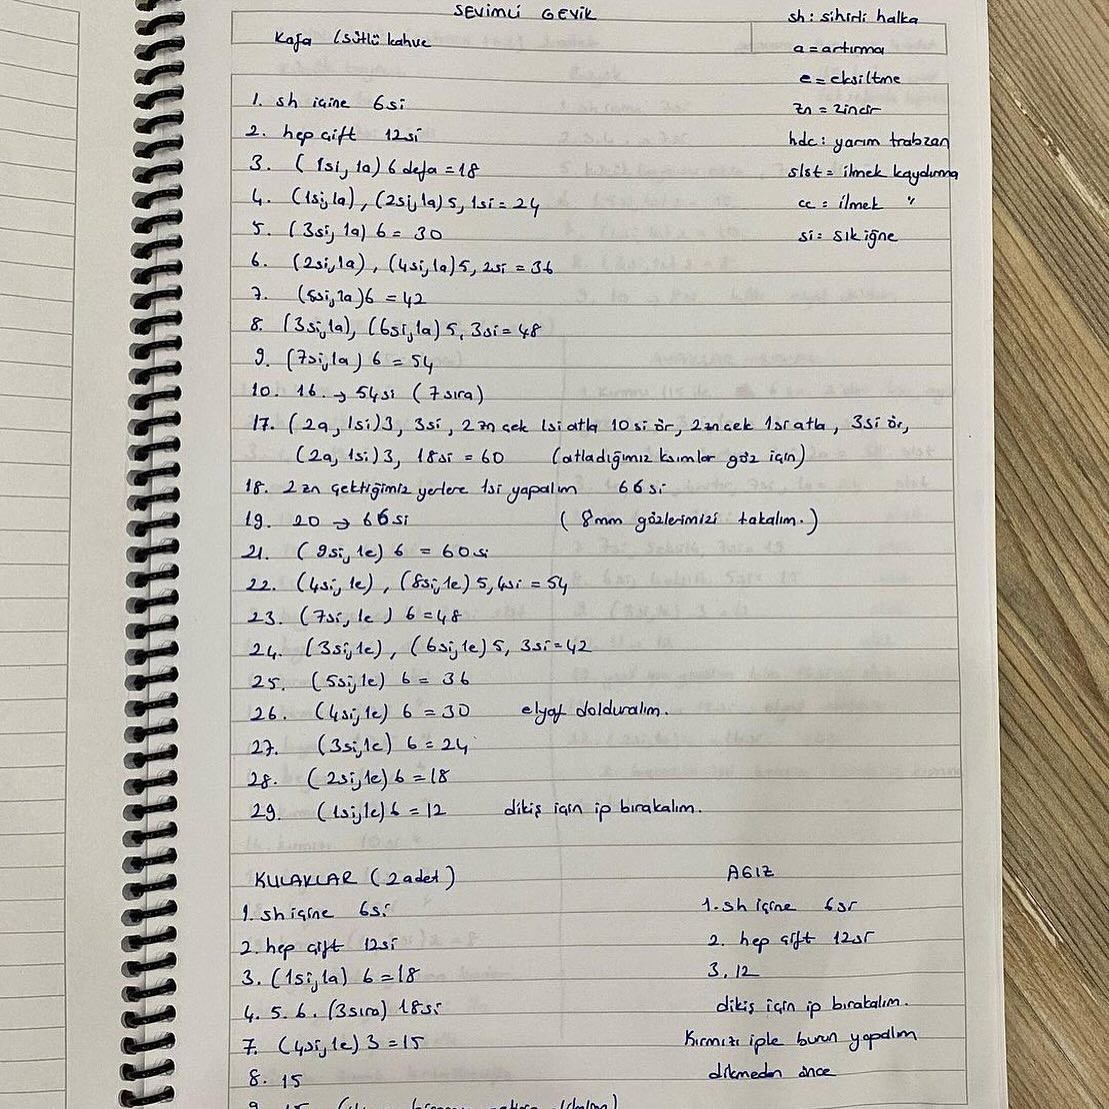 SEVİMLİ GEYİK
Kafa (sütlü kahve
sh: sihirli halka
a=artırma
e=eksiltme
zn = zincir
hdc: yarım trabzan
slst= ilmek kaydırma
cc = ilmek "
si= sık iğne
1. sh içine 6si
2. hep çift 12si
3. (1si, 1a) 6 defa = 18
4. (1si,1a), (2si,1a) 5, 1si = 24
5. (3si, 1a) 6 = 30
6. (2si,1a), (4si,1a) 5, 2si = 36
7. (5si,1a)6 = 42
8. (3si,1a), (6si,1a) 5, 3si = 48
9. (7si,1a) 6 = 54
10. 16. → 54si (7sıra)
17. (2a, 1si)3, 3si, 2zn çek 1si atla 10si ör, 2zn çek 1si atla, 3si ör,
(2a, 1si)3, 18si = 60 (atladığımız kısımlar göz için)
18. 2 zn çektiğimiz yerlere 1si yapalım 66si
19. 20 → 66si (8mm gözlerimizi takalım.)
21. (9si,1e) 6 = 60si
22. (4si,1e), (8si,1e) 5, 4si = 54
23. (7si, 1e) 6=48
24. (3si,1e), (6si,1e) 5, 3si=42
25. (5si,1e) 6 = 36
26. (4si,1e) 6 = 30 elyaf dolduralım.
27. (3si,1e) 6 = 24
28. (2si,1e) 6 = 18
29. (1si,1e) 6 = 12 dikiş için ip bırakalım.
KULAKLAR (2 adet)
1. sh içine 6si
2. hep çift 12si
3. (1si,1a) 6 = 18
4. 5. 6. (3sıra) 18si
7. (4si,1e) 3 = 15
8. 15
AGIZ
1. sh içine 6si
2. hep çift 12si
3. 12
dikiş için ip bırakalım.
Kırmızı iple burun yapalım
dikmeden önce